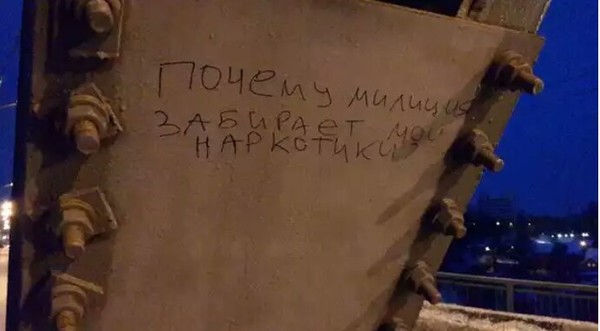 Почему милиция
забирает мои
наркотики?